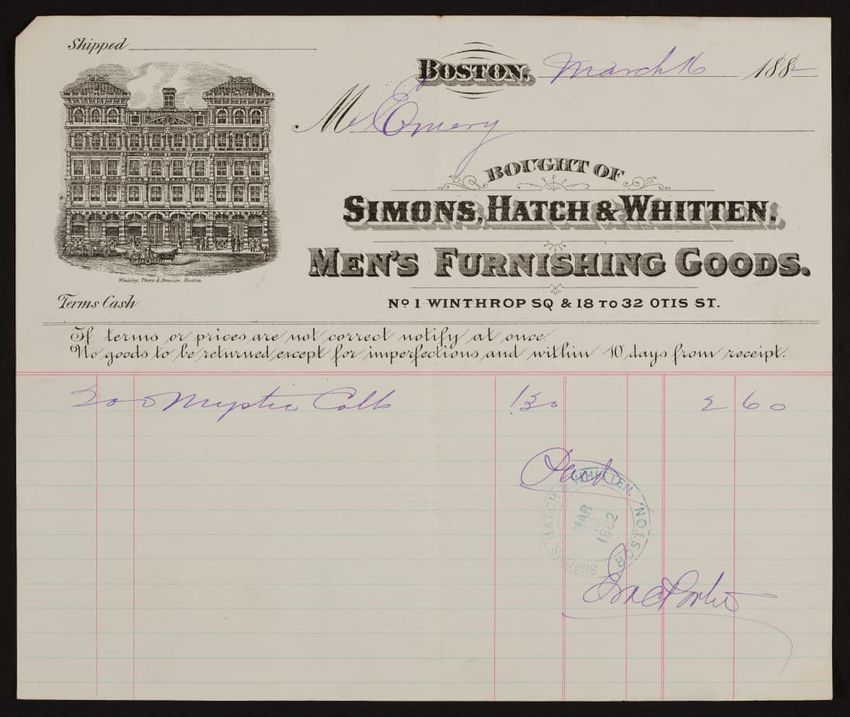 Shipped
BOSTON, March 16 1882
Mr Emery
BOUGHT OF
SIMONS, HATCH & WHITTEN.
MEN'S FURNISHING GOODS.
Terms Cash
No 1 WINTHROP SQ & 18 TO 32 OTIS ST.
If terms or prices are not correct notify at once.
No goods to be returned except for imperfections, and within 10 days from receipt.
200 Mystic Colls 1 30 2 60
Paid
SIMONS HATCH & WHITTEN. BOSTON
MAR
1882